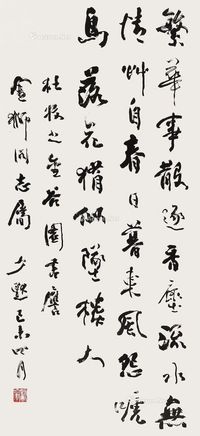 繁華事散逐香塵流水無
情艸自春日暮東風怨嗁
鳥落花猶似墜樓人
杜牧之金谷園書應
金獅同志屬
少默己未四月